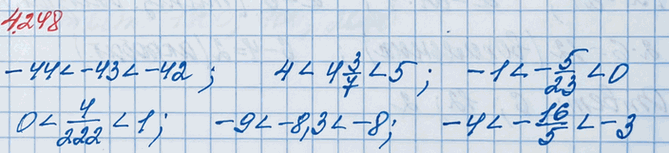 4.248
-44 < -43 < -42; 4 < 4 3/7 < 5; -1 < -5/23 < 0
0 < 4/222 < 1; -9 < -8,3 < -8; -4 < -16/5 < -3